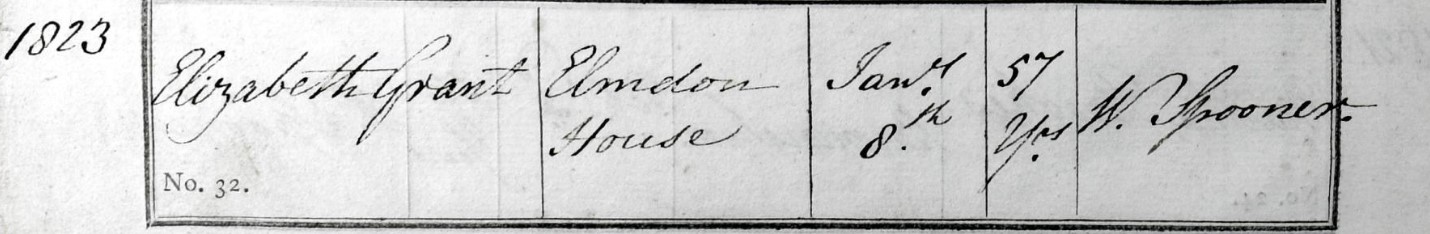 1823
Elizabeth Grant
Elmdon
House
Jany
8.th
57
Yrs
W. Spooner.
No. 32.